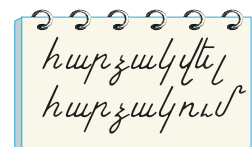 հարձակվել
հարձակում